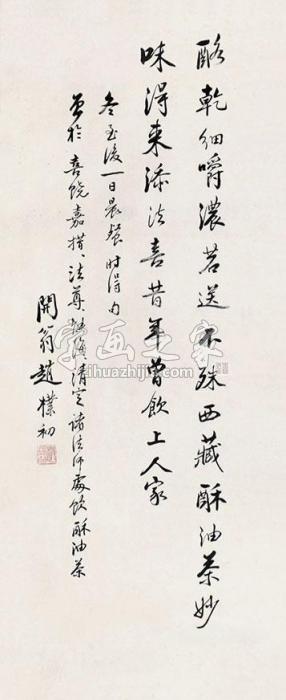 酪乾細嚼濃茗送不殊西藏酥油茶妙
味得来添法喜昔年曾飲上人家
冬至後一日晨餐時得句
曾於喜饒嘉措、法尊、海清定諸法師處飲酥油茶
開翁趙樸初
字画之家
zihuazhijia.com